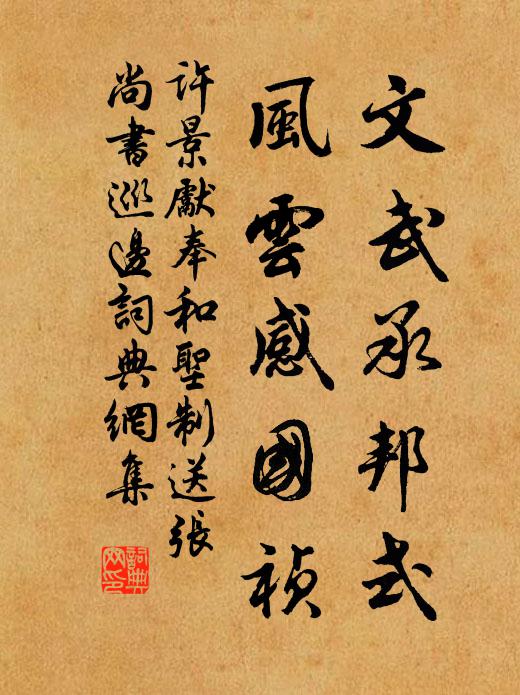 文武承邦式
風雲感國禎
許景獻奉和聖制送張
尚書巡邊詞典網集
詞典网印